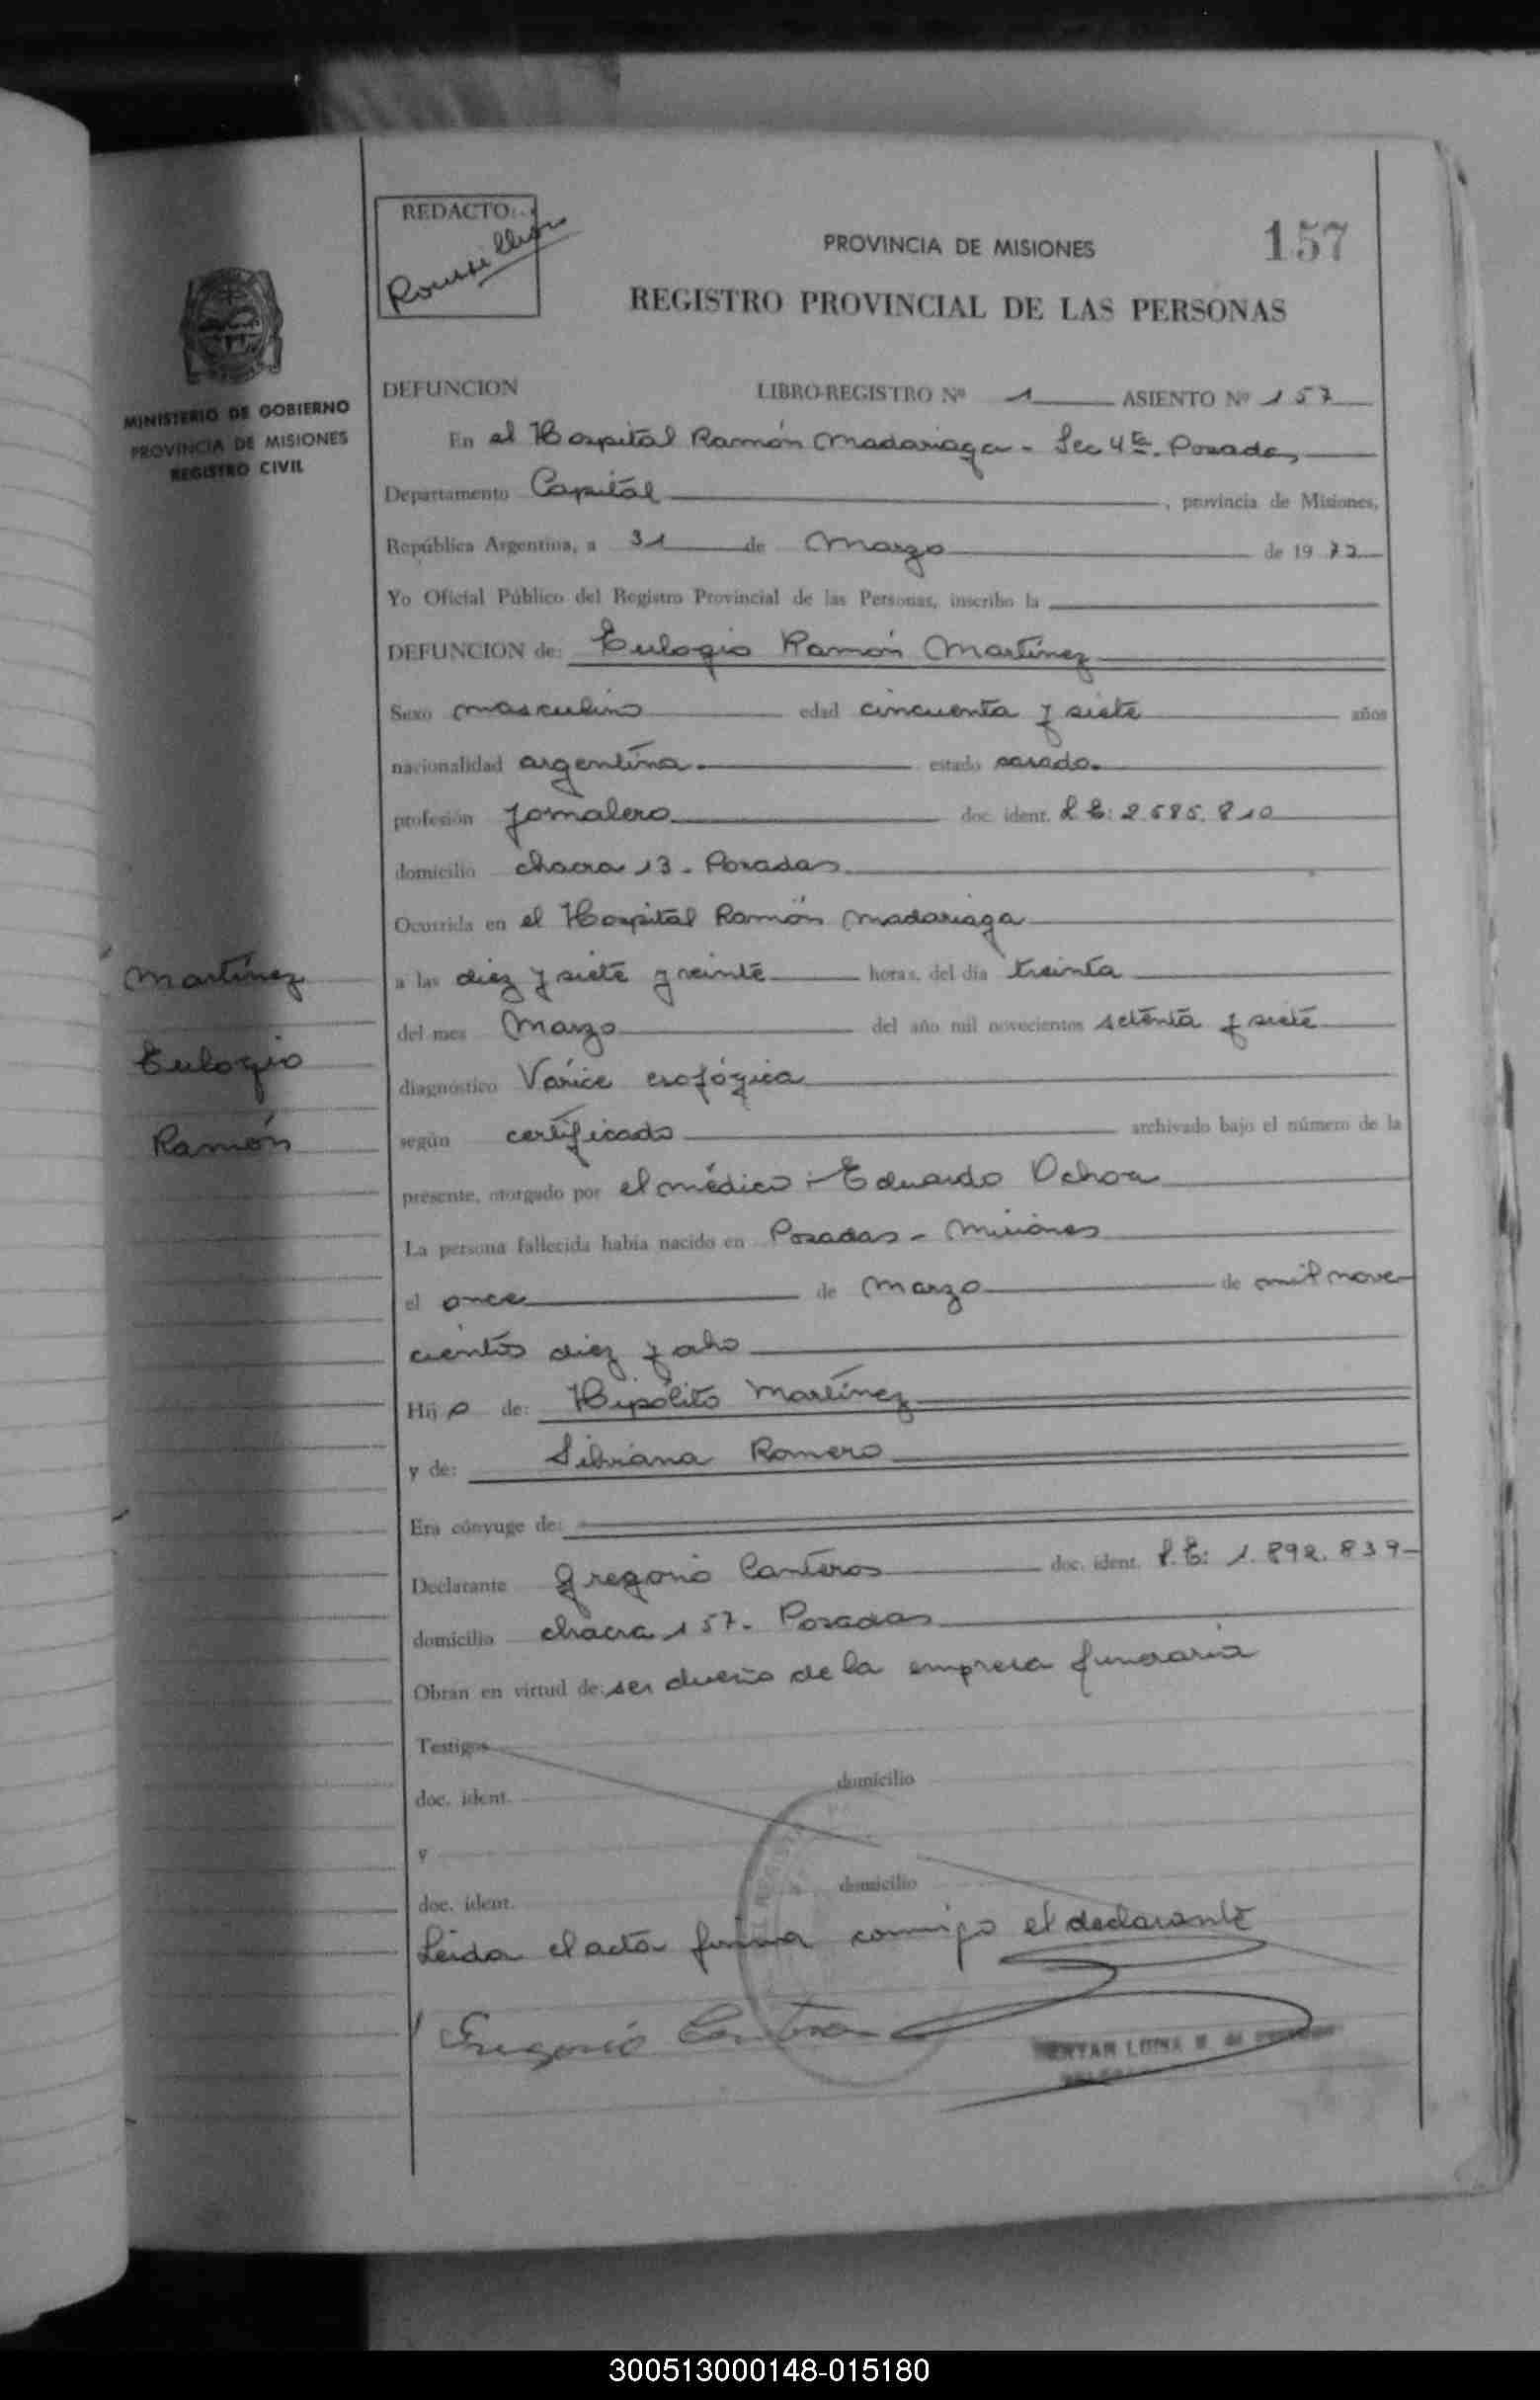 REDACTO:
PROVINCIA DE MISIONES
157
REGISTRO PROVINCIAL DE LAS PERSONAS
MINISTERIO DE GOBIERNO
PROVINCIA DE MISIONES
REGISTRO CIVIL
DEFUNCION LIBRO-REGISTRO Nº 1 ASIENTO Nº 157
En el Hospital Ramón Madariaga - Sec 4ta. Posadas
Departamento Capital, provincia de Misiones,
República Argentina, a 31 de Marzo de 19 77
Yo Oficial Público del Registro Provincial de las Personas, inscribo la
DEFUNCION de: Eulogio Ramón Martínez
Sexo masculino edad cincuenta y siete años
nacionalidad argentina. estado casado.
profesión jornalero doc. ident. L E: 2.585.810
domicilio chacra 13 - Posadas
Ocurrida en el Hospital Ramón Madariaga
a las diez y siete y veinte horas, del día treinta
del mes Marzo del año mil novecientos setenta y siete
diagnóstico Várice esofógica
según certificado archivado bajo el número de la
presente, otorgado por el médico :- Eduardo Ochoa
La persona fallecida había nacido en Posadas - Misiones
el once de Marzo de mil nove-
cientos diez y ocho
Hij o de: Hipólito Martínez
y de: Silviana Romero
Era cónyuge de:
Declarante Gregorio Canteros doc. ident. L.E: 1.892.839-
domicilio chacra 157. Posadas
Obran en virtud de: ser dueño de la empresa funeraria
Testigos
doc. ident. domicilio
y
doc. ident. domicilio
Leída el acta firma conmigo el declarante
Gregorio Canteros
Martínez
Eulogio
Ramón
300513000148-015180